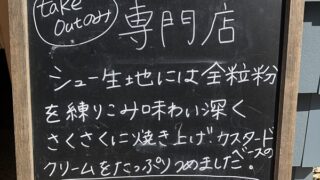 take
outのみ
専門店
シュー生地には全粒粉
を練りこみ味わい深く
さくさくに焼き上げカスタード
ベースの
クリームをたっぷりつめました。